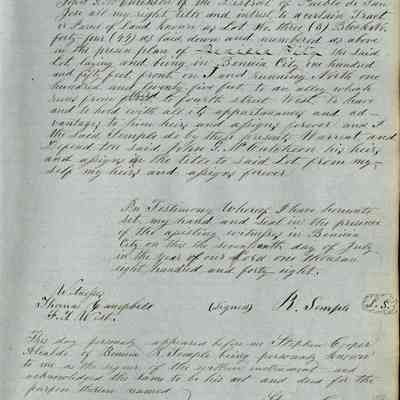 John G. McCutcheon of the District of Pueblo de San
Jose all my right title and intrest, to a certain Tract
or Parcel of Land known as Lot No three (3) Block No
forty four (44) as laid down and numbered as above
in the presin plan of Benicia City the said
Lot laying and being in Benicia City one hundred
and fifty feet front on I and running North one
hundred and twenty five feet to an alley which
runs from to fourth street West, to have
and to hold with all its appurtanances and ad-
vantages to him heirs and assigns forever and I
the said Semple do by these presents Warrent and
Defend too said John G. McCutcheon his heirs
and assigns in the title to said Lot from my-
self my heirs and assigns forever
In Testimony Whereof I have hereunto
set my hand and Seal in the presence
of the assisting witnesses in Benicia
City on this the seventeenth day of July
in the year of our Lord one thousand
eight hundred and forty eight.
Witnesses
Thomas Campbell (signed) R. Semple L.S.
F. L. Will.
This day personaly appeared before me Stephen C,
Alcalde of Benicia R. Semple being personaly known
to me as the signer of the written instrument and
acknowledged the same to be his act and deed for the
purpose therein named